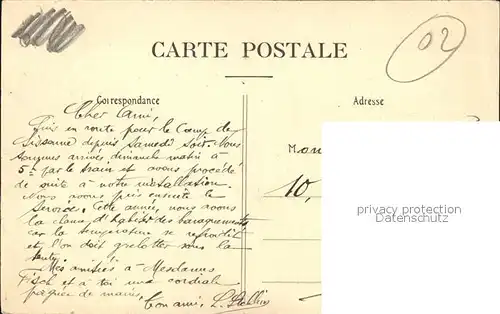 02
CARTE POSTALE
Correspondance
Adresse
Cher Ami,
Suis en route pour le Camp de
Sissonne depuis Samedi soir. Nous
sommes arrivés dimanche matin à
5h par le train et avons procédé
de suite à notre installation.
Nous avons pris ensuite le
Service. Cette année, nous avons
la chance d'habiter des baraquements
car la température se refroidit
et l'on doit grelotter sous la
tente.
Mes amitiés à Mesdames
Fisch et à toi une cordiale
poignée de mains,
Ton ami, L.
10,
privacy protection
Datenschutz